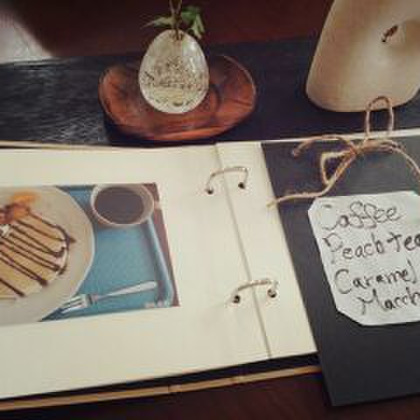 Caffee
Peach tea
Caramel
Macch